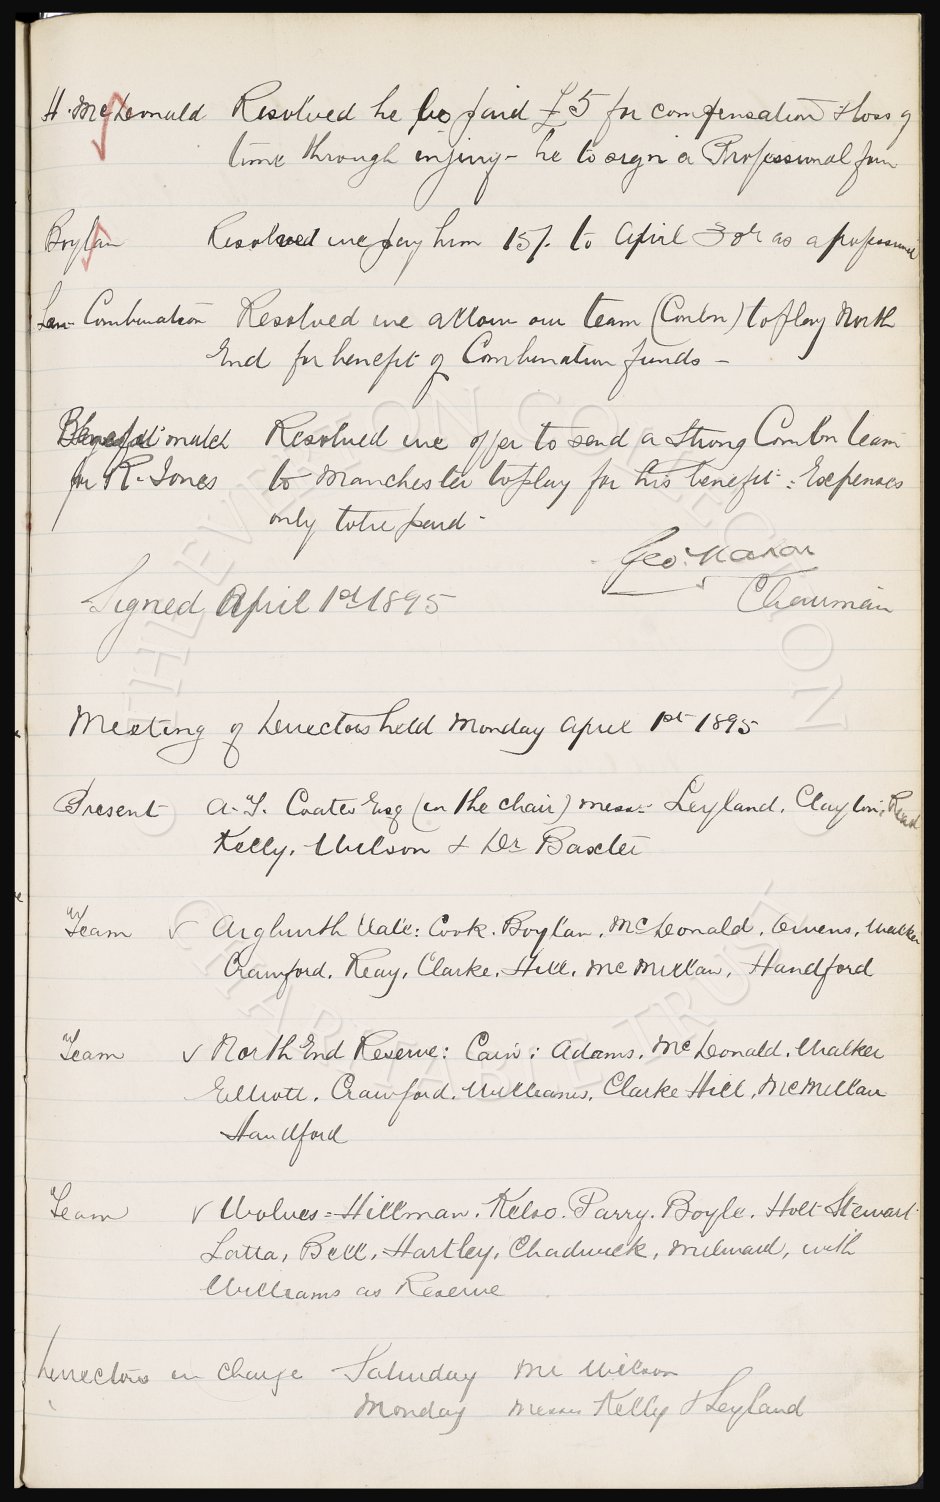 H. McDonald Resolved he be paid £5 for compensation & loss of
time through injury - he to sign a Professional form
Boylan Resolved we pay him 15/- to April 30th as a professional
Lanc Combination Resolved we allow our team (Combn) to play North
End for benefit of Combination funds -
Benefit match Resolved we offer to send a strong Combn team
for R. Jones to Manchester to play for his benefit: Expenses
only to be paid -
Geo. Mahon
Signed April 1st 1895 Chairman
Meeting of Directors held Monday April 1st 1895
Present A. T. Coates Esq (in the chair) Messrs Leyland, Clayton,
Kelly, Wilson & Dr Baxter
Team ✓ Aigburth Vale: Cook. Boylan, McDonald, Owens, Walker
Crawford, Reay, Clarke, Hill, McMillan, Handford
Team ✓ North End Reserve: Cain: Adams, McDonald, Walker
Elliott, Crawford, Williams, Clarke Hill, McMillan
Handford
Team ✓ Wolves = Hillman. Kelso. Parry. Boyle. Holt Stewart
Latta, Bell, Hartley, Chadwick, Milward, with
Williams as Reserve
Directors in charge Saturday Mr Wilson
Monday Messrs Kelly & Leyland
THE EVERTON COLLECTION
CHARITABLE TRUST